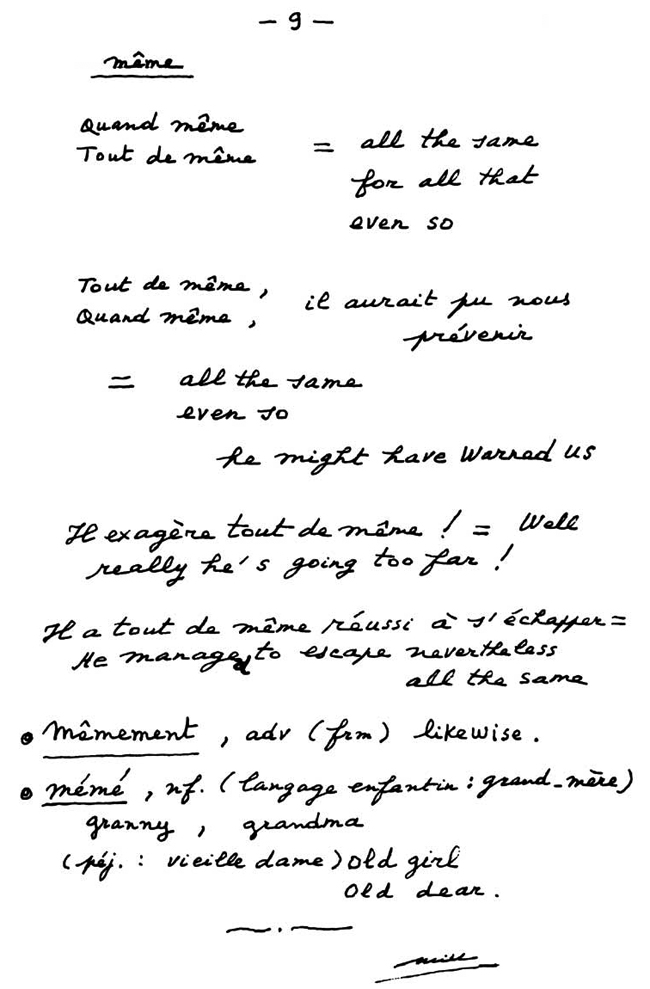 - 9 -
même
Quand même
Tout de même = all the same
for all that
even so
Tout de même,
Quand même, il aurait pu nous
prévenir
= all the same
even so
he might have warned us
Il exagère tout de même ! = Well
really he's going too far !
Il a tout de même réussi à s'échapper =
He managed to escape nevertheless
all the same
• Mêmement, adv (frm) likewise.
• mémé, nf. (langage enfantin : grand-mère)
granny, grandma
(péj. : vieille dame) old girl
old dear.